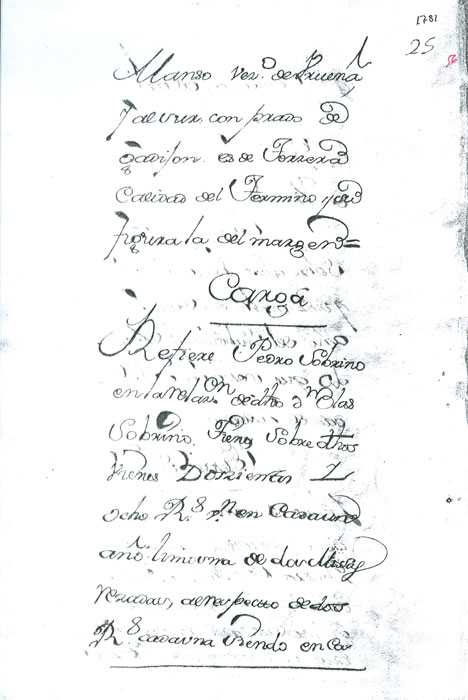 1781
25
56
Alonso vez.º de Bruena
con prado de
es de Terzera
Calidad del Termino, y su
figura la del margen =
Carga
Refiere Pedro Sobrino
en la relaz.on de dho Sr Blas
Sobrino. Tiene Sobre dhos
Vienes Dozientas
ocho R.s v.n en Cadauno
año limosna de dos Misas
rezadas, al respecto de dos
R.s cada una siendo en ca